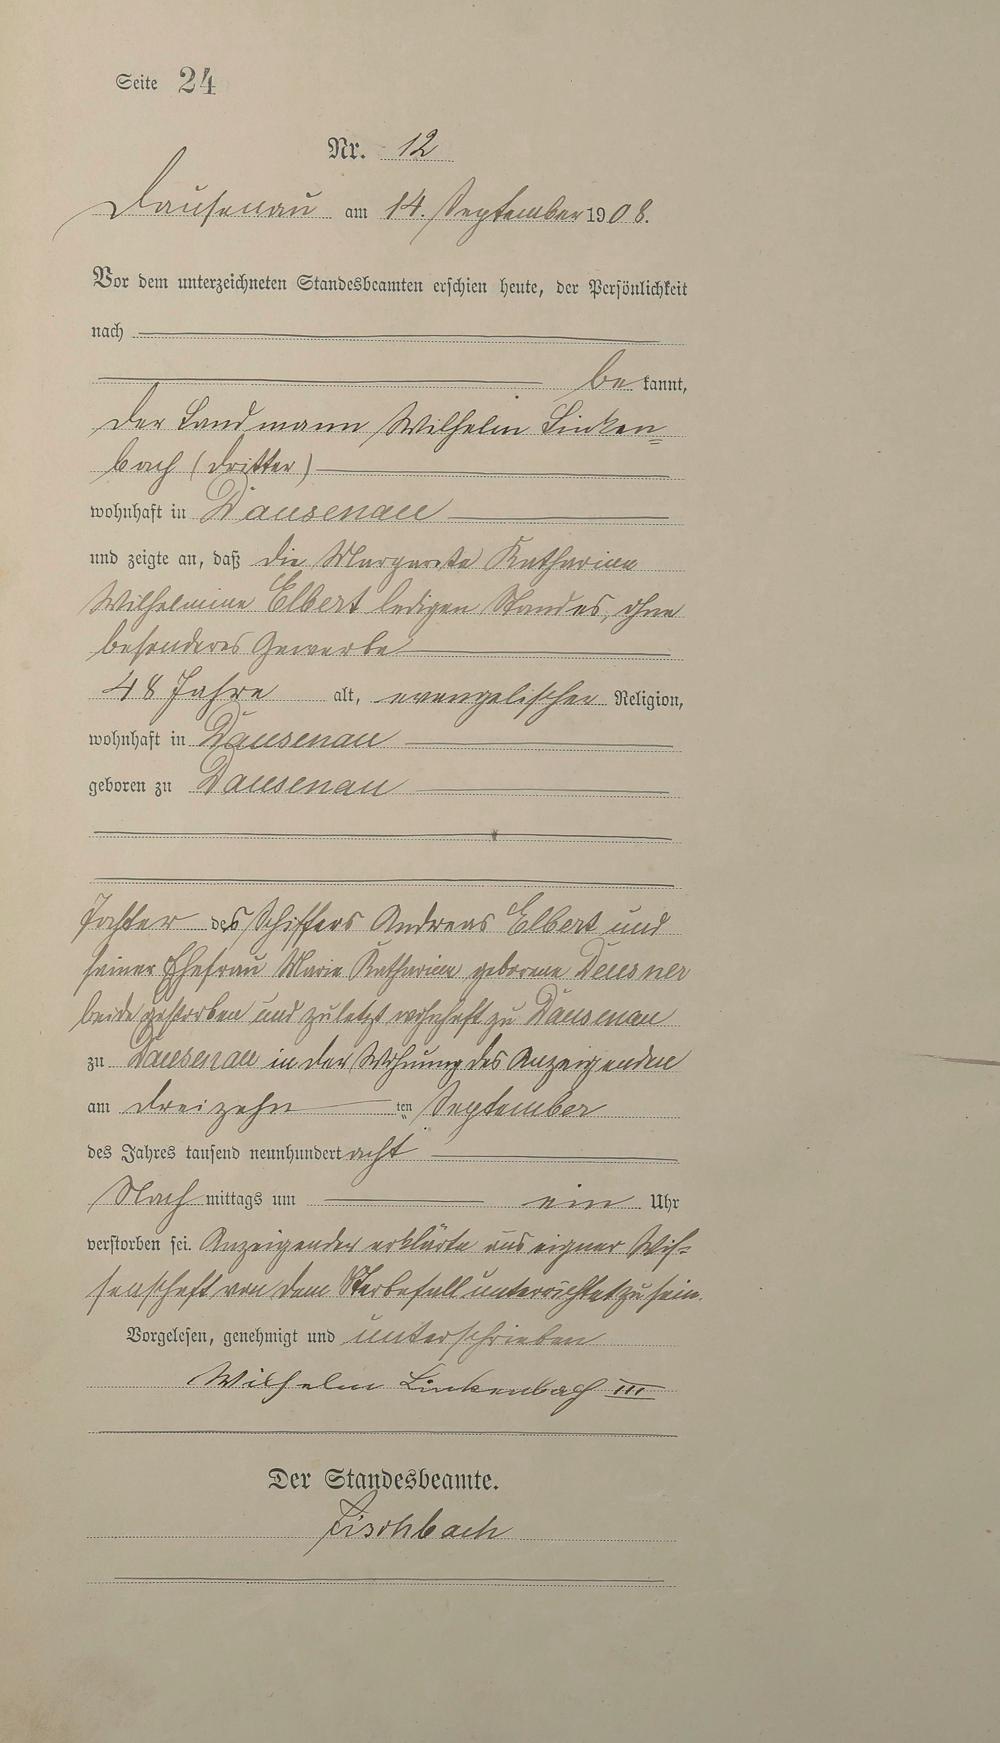 Seite 24
Nr. 12
Dausenau am 14. September 1908.
Vor dem unterzeichneten Standesbeamten erschien heute, der Persönlichkeit
nach
be kannt,
der Landmann Wilhelm Linken=
bach (dritter)
wohnhaft in Dausenau
und zeigte an, daß die Margareta Katharina
Wilhelmine Elbert ledigen Standes, ohne
besonderes Gewerbe
48 Jahre alt, evangelischer Religion,
wohnhaft in Dausenau
geboren zu Dausenau
Tochter des Schiffers Andreas Elbert und
seiner Ehefrau Marie Katharina geborene Deusner
beide gestorben und zuletzt wohnhaft zu Dausenau
zu Dausenau in der Wohnung des Anzeigenden
am dreizehn ten September
des Jahres tausend neunhundert acht
Nach mittags um ein Uhr
verstorben sei. Anzeigender erklärte aus eigner Wis=
senschaft von dem Sterbefall unterrichtet zu sein.
Vorgelesen, genehmigt und unterschrieben
Wilhelm Linkenbach III
Der Standesbeamte.
Fischbach